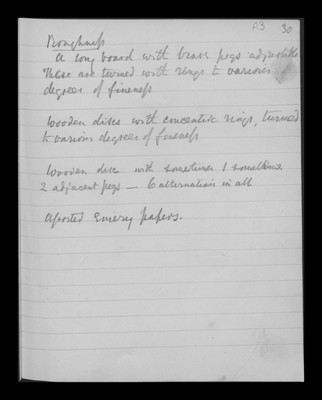 P.3 30
Roughness
A long board with brass pegs adjustable
These are turned with rings to various
degrees of fineness
Wooden discs with concentric rings, turned
to various degrees of fineness
Wooden disc with sometimes 1 sometimes
2 adjacent pegs — 6 alternations in all
Assorted Emery papers.